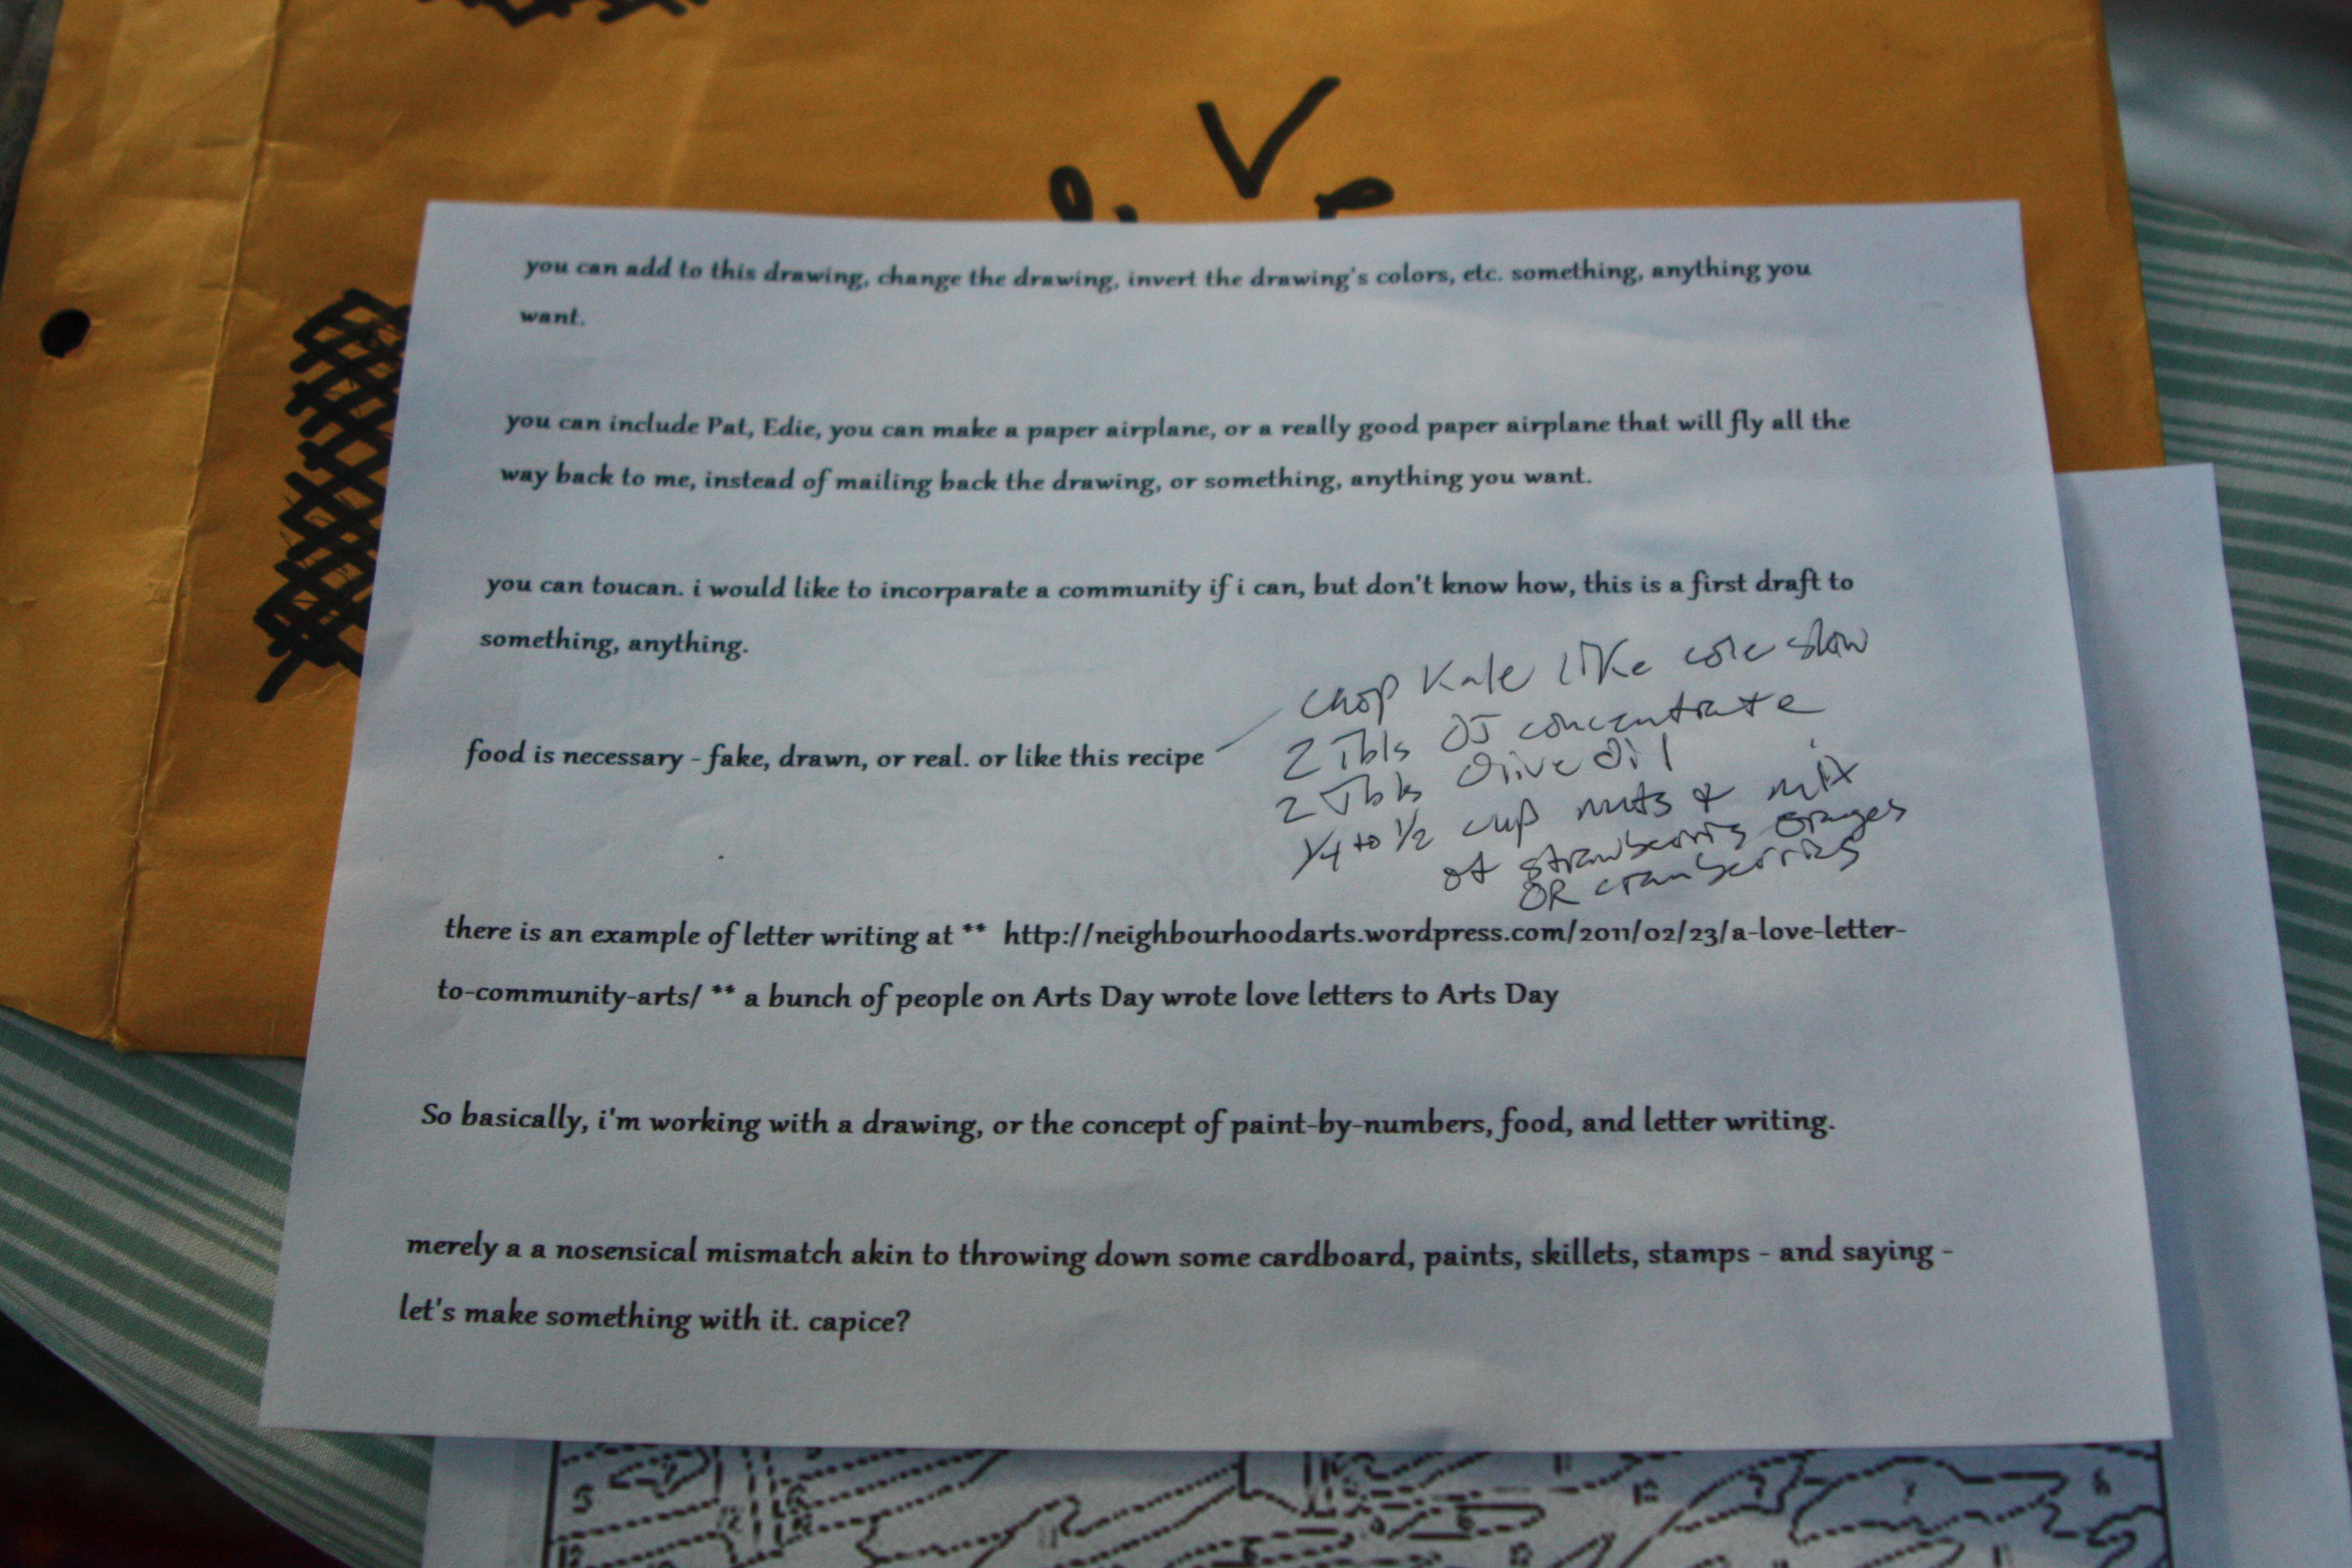 V
you can add to this drawing, change the drawing, invert the drawing's colors, etc. something, anything you
want.
you can include Pat, Edie, you can make a paper airplane, or a really good paper airplane that will fly all the
way back to me, instead of mailing back the drawing, or something, anything you want.
you can toucan. i would like to incorparate a community if i can, but don't know how, this is a first draft to
something, anything.
food is necessary - fake, drawn, or real. or like this recipe
chop Kale like cole slaw
2 Tbls OJ concentrate
2 Tbls Olive Oil
1/4 to 1/2 cup nuts & mix
of strawberris oranges
OR cranberries
there is an example of letter writing at ** http://neighbourhoodarts.wordpress.com/2011/02/23/a-love-letter-
to-community-arts/ ** a bunch of people on Arts Day wrote love letters to Arts Day
So basically, i'm working with a drawing, or the concept of paint-by-numbers, food, and letter writing.
merely a a nosensical mismatch akin to throwing down some cardboard, paints, skillets, stamps - and saying -
let's make something with it. capice?
5
7
6
12